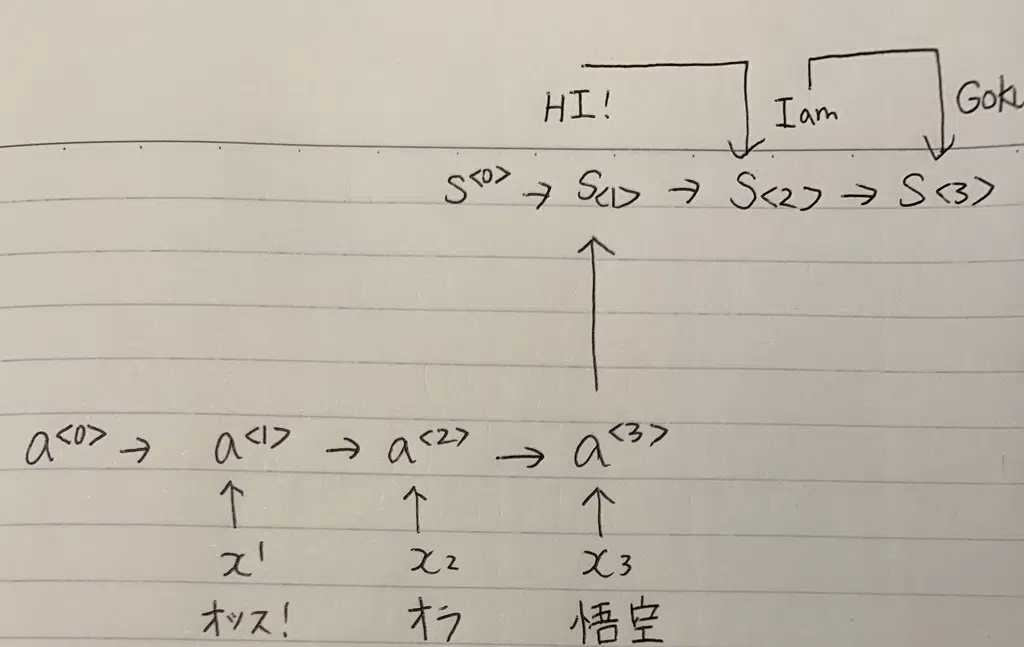 HI! I am Goku
S<0> → S<1> → S<2> → S<3>
a<0> → a<1> → a<2> → a<3>
x1 x2 x3
オッス! オラ 悟空